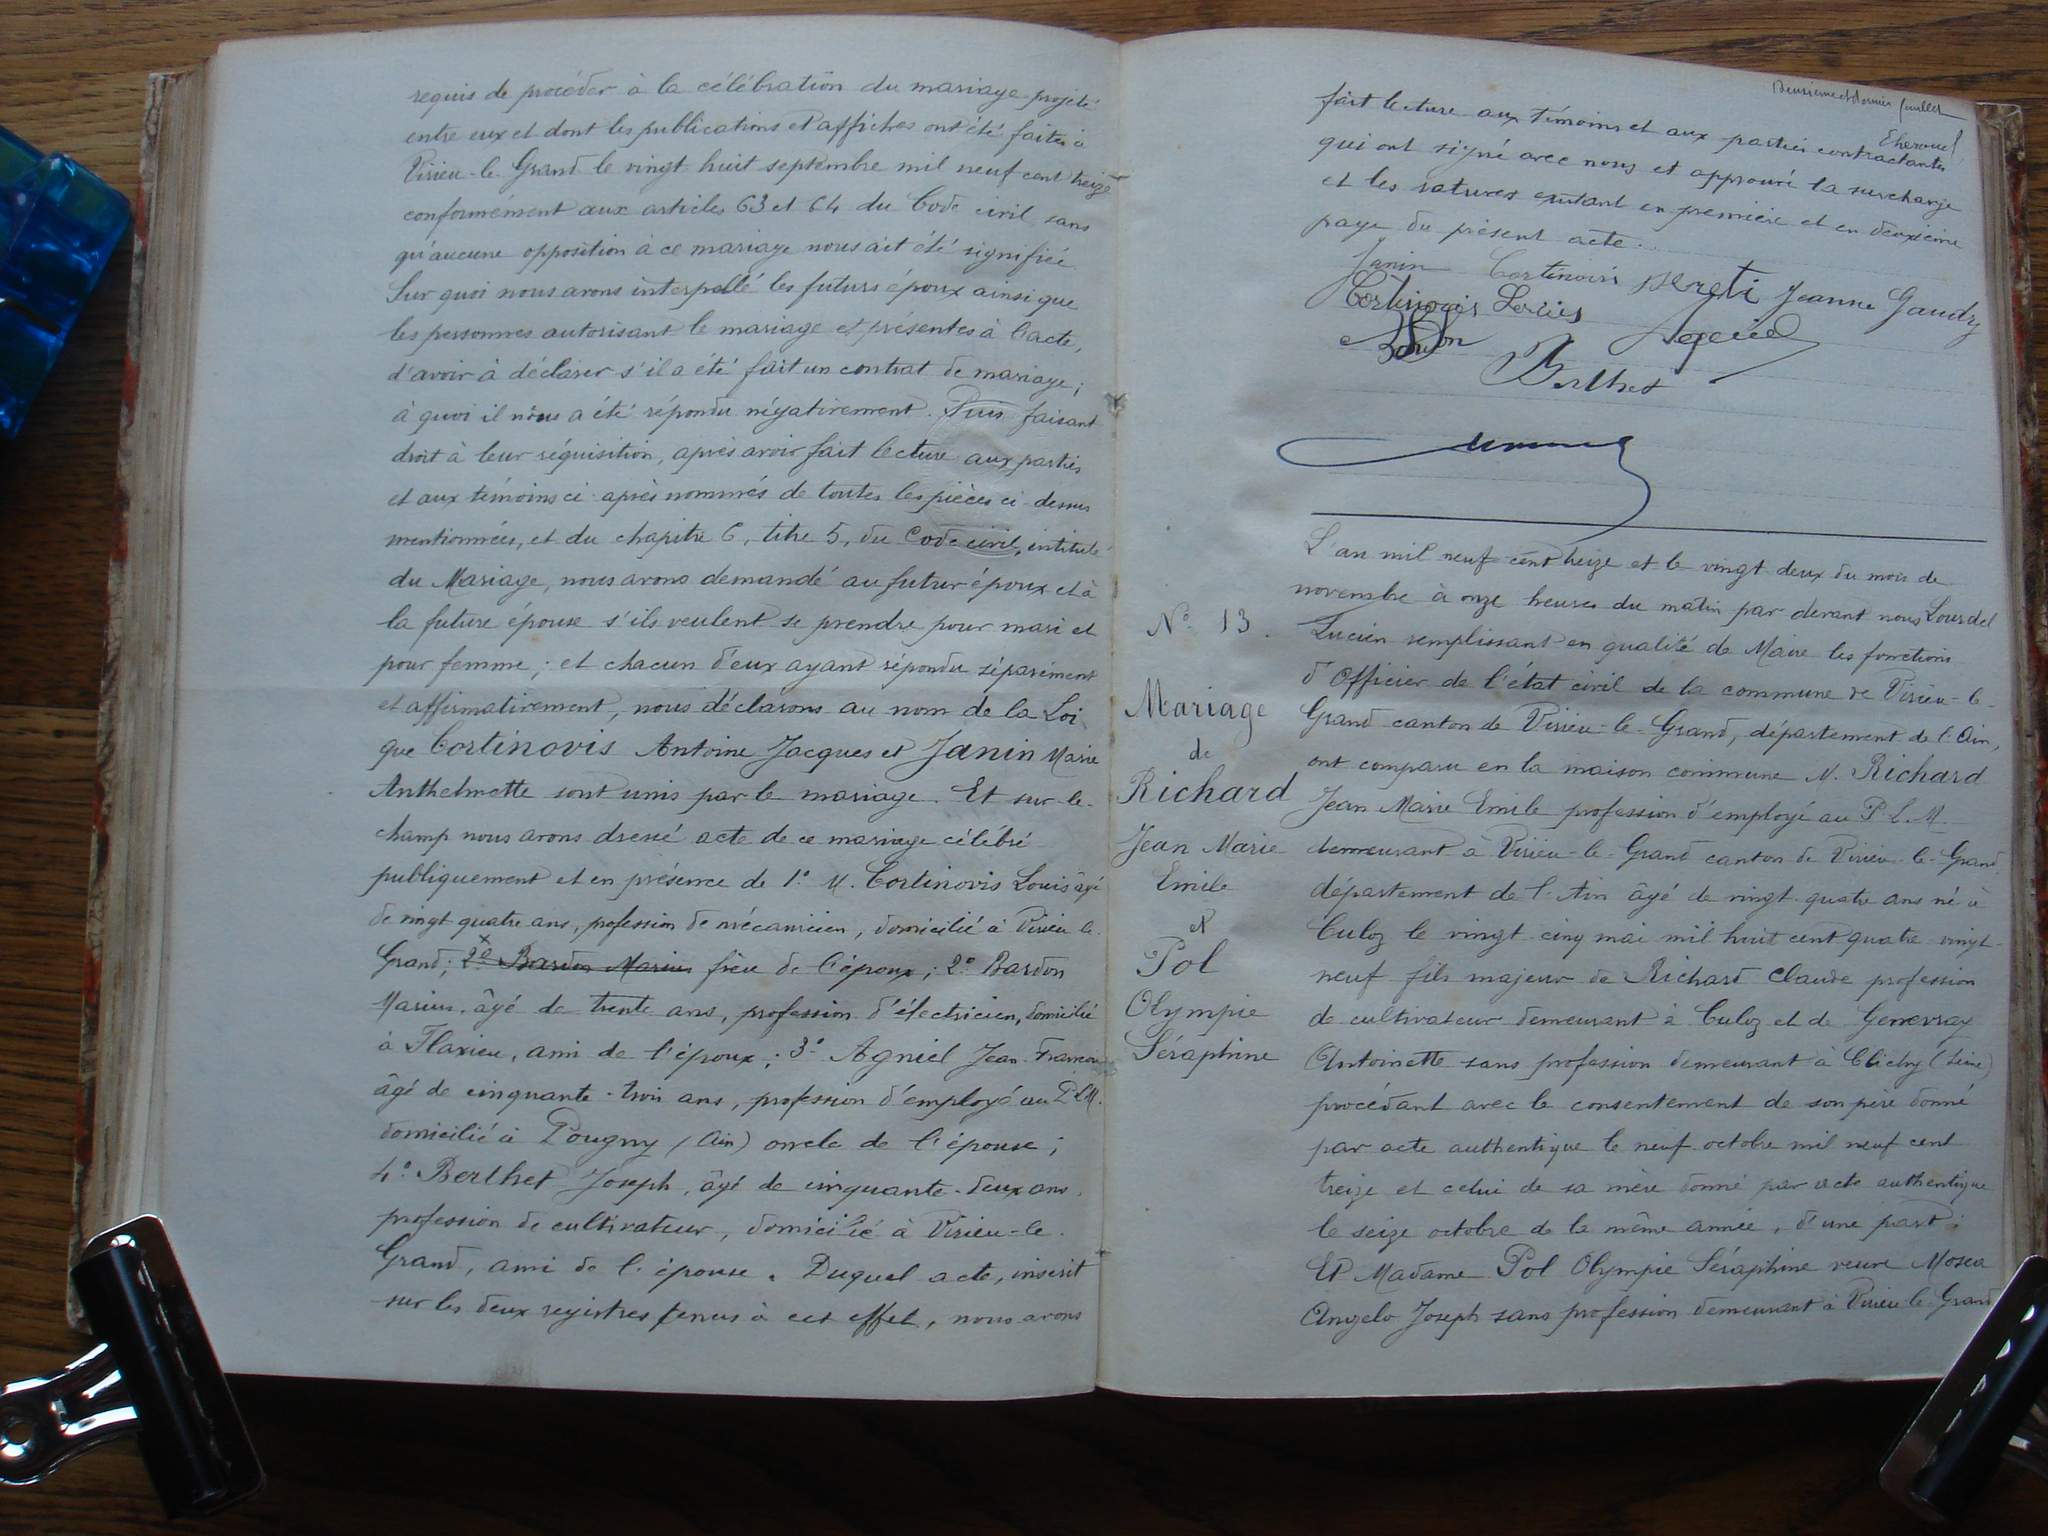 requis de procéder à la célébration du mariage projeté
entre eux et dont les publications et affiches ont été faites à
Virieu-le-Grand le vingt huit septembre mil neuf cent treize
conformément aux articles 63 et 64 du Code civil sans
qu'aucune opposition à ce mariage nous ait été signifiée
Sur quoi nous avons interpellé les futurs époux ainsi que
les personnes autorisant le mariage et présentes à l'acte,
d'avoir à déclarer s'il a été fait un contrat de mariage;
à quoi il nous a été répondu négativement. Puis faisant
droit à leur réquisition, après avoir fait lecture aux parties
et aux témoins ci-après nommés de toutes les pièces ci-dessus
mentionnées, et du chapitre 6, titre 5, du Code civil, intitulé
du Mariage, nous avons demandé au futur époux et à
la future épouse s'ils veulent se prendre pour mari et
pour femme; et chacun d'eux ayant répondu séparément
et affirmativement, nous déclarons au nom de la Loi
que Cortinovis Antoine Jacques et Janin Marie
Anthelmette sont unis par le mariage. Et sur-le-
champ nous avons dressé acte de ce mariage célébré
publiquement et en présence de 1° M. Cortinovis Louis âgé
de vingt quatre ans, profession de mécanicien, domicilié à Virieu le
Grand; 2° Bardon Marius frère de l'époux; 2° Bardon
Marius, âgé de trente ans, profession d'électricien, domicilié
à Flaxieu, ami de l'époux; 3° Agniel Jean-François
âgé de cinquante-trois ans, profession d'employé au P.L.M.
domicilié à Pougny (Ain) oncle de l'épouse;
4° Berthet Joseph, âgé de cinquante-deux ans,
profession de cultivateur, domicilié à Virieu-le-
Grand, ami de l'épouse. Duquel acte, inscrit
sur les deux registres tenus à cet effet, nous avons
Deuxième et dernier feuillet
fait lecture aux témoins et aux parties contractantes
qui ont signé avec nous et approuvé la surcharge
et les ratures existant en première et en deuxième
page du présent acte.
Janin Cortinovis Jeanne Gaudry
Cortinovis Louis Agniel
Bardon
Berthet
L'an mil neuf cent treize et le vingt deux du mois de
novembre à onze heures du matin par devant nous Lourdel
Lucien remplissant en qualité de Maire les fonctions
d'Officier de l'état civil de la commune de Virieu-le-
Grand canton de Virieu-le-Grand, département de l'Ain,
ont comparu en la maison commune M. Richard
Jean Marie Emile profession d'employé au P.L.M.
demeurant à Virieu-le-Grand canton de Virieu-le-Grand
département de l'Ain âgé de vingt-quatre ans né à
Culoz le vingt-cinq mai mil huit cent quatre-vingt-
neuf fils majeur de Richard Claude profession
de cultivateur demeurant à Culoz et de Genevray
Antoinette sans profession demeurant à Clichy (Seine)
procédant avec le consentement de son père donné
par acte authentique le neuf octobre mil neuf cent
treize et celui de sa mère donné par acte authentique
le seize octobre de la même année, d'une part;
Et Madame Pol Olympie Séraphine veuve Mosca
Angelo Joseph sans profession demeurant à Virieu-le-Grand
N° 13.
Mariage
de
Richard
Jean Marie
Emile
et
Pol
Olympie
Séraphine